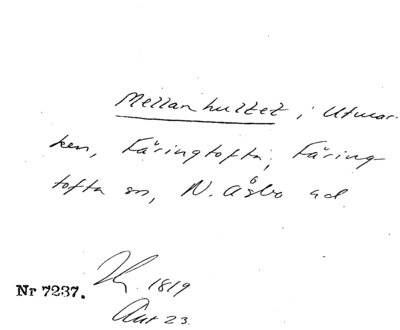 Mellanhultet, i Utmar-
ken, Fåringtofta, Fåring
tofta sn, N. Åsbo hd
1819
Nr 7237.
Akt 23.